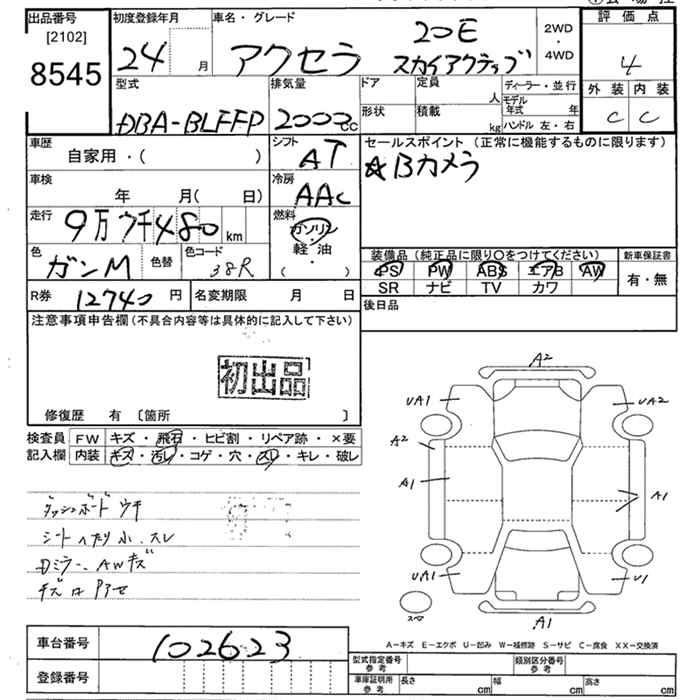 出品番号 初度登録年月 車名・グレード 20E 2WD・4WD 評価点
[2102]
8545 24 月 アクセラ スカイアクティブ 4
型式 排気量 ドア 定員 人 ディーラー・並行 外装 内装
DBA-BLFFP 2000cc 形状 積載 kg モデル年式 年 ハンドル 左・右 C C
車歴 シフト セールスポイント (正常に機能するものに限ります)
自家用・( ) AT ☆Bカメラ
車検 冷房
年 月( 日) AAC
走行 燃料
9万 ウチ 480 km ガソリン
軽油
・( )
色 色替 色コード 装備品 (純正品に限り〇をつけてください) 新車保証書
ガンM 38R PS PW ABS エアB AW 有・無
SR ナビ TV カワ
R券 12740円 名変期限 月 日 後日品
注意事項申告欄 (不具合内容等は具体的に記入して下さい)
初出品
修復歴 有 〔箇所 〕
検査員 FW キズ・飛石・ヒビ割・リペア跡・×要
記入欄 内装 キズ・汚レ・コゲ・穴・スレ・キレ・破レ
ダッシュボード ウキ
シートヘタリ小、スレ
Dミラー、AWキズ
A2
UA1 UA2
A2
A1 A1
UA1 U1
スペア A1
A-キズ E-エクボ U-凹み W-補修跡 S-サビ C-腐食 XX-交換済
車台番号 102623
登録番号
型式指定番号 参考 類別区分番号 参考
車庫証明用 参考 長さ cm 幅 cm 高さ cm